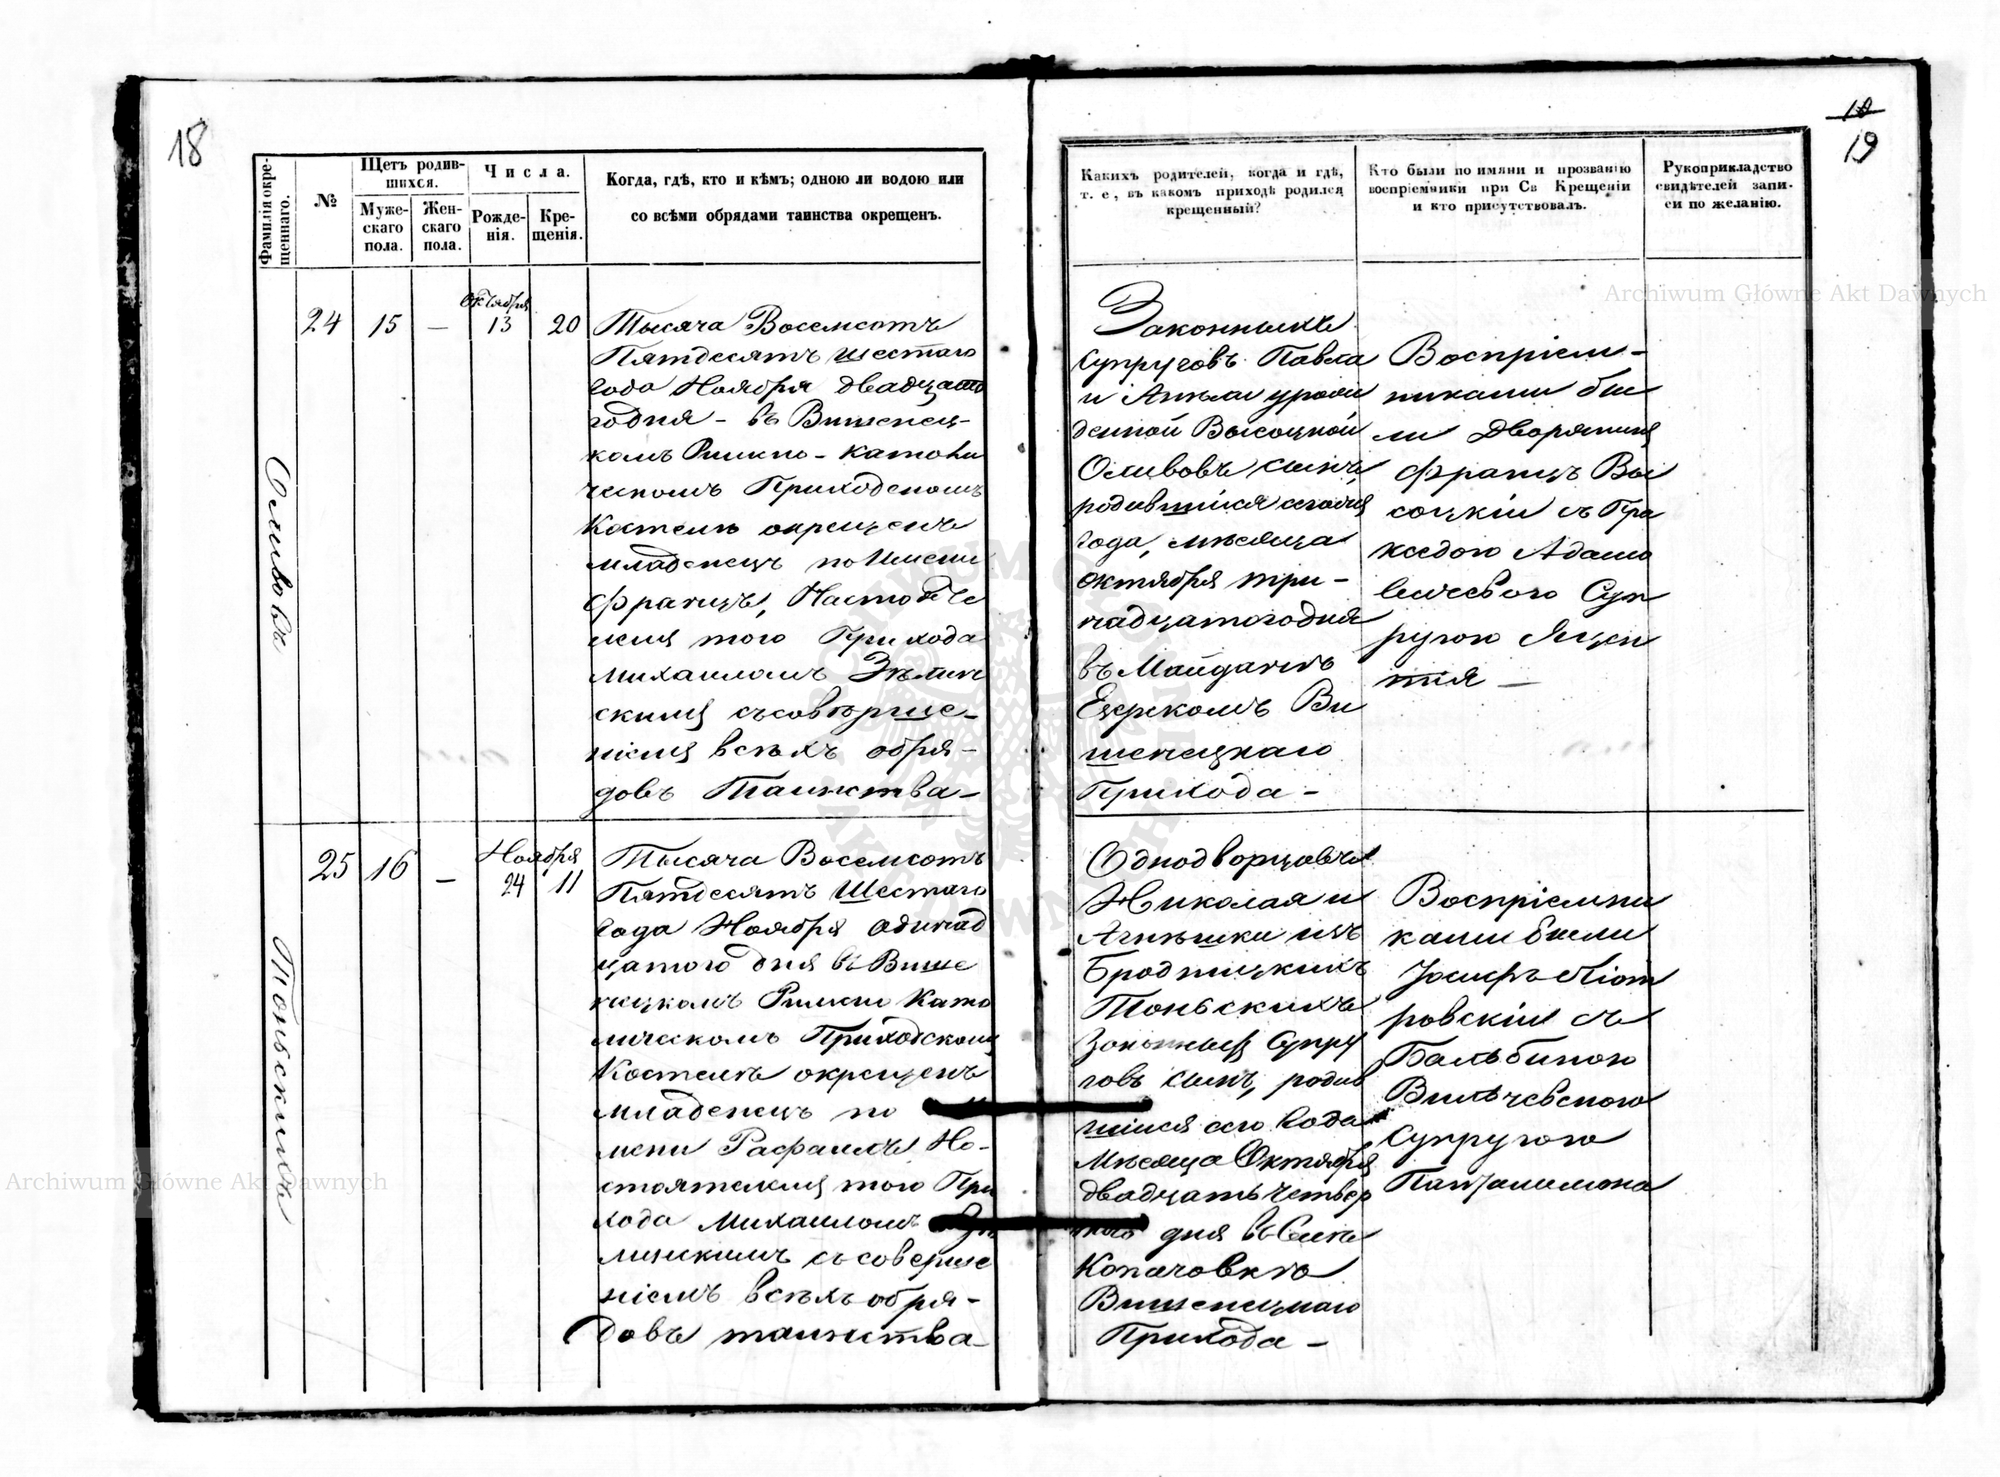 18
Фамилія окре-
щеннаго.
№
Щетъ родив-
шихся.
Муже-
скаго
пола.
Жен-
скаго
пола.
Числа.
Рожде-
нія.
Кре-
щенія.
Когда, гдѣ, кто и кѣмъ; одною ли водою или
со всѣми обрядами таинства окрещенъ.
Осливовъ
24
15
—
Октября
13
20
Тысяча Восемсотъ
Пятдесятъ шестаго
года Ноября двадцато
годня - въ Вишенец-
комъ Римско - католи
ческомъ Приходскомъ
Костелѣ окрещенъ
младенецъ по Имени
Францъ, Настояте
лемъ того Прихода
Михаиломъ
скимъ съ соверше-
ніемъ всѣхъ обря-
довъ Таинства -
Тоньскихъ
25
16
—
Ноября
24
11
Тысяча Восемсотъ
Пятдесятъ Шестаго
года Ноября одинад
цатого дня въ Више
нецкомъ Римско Като
лическомъ Приходскомъ
Костелѣ окрещенъ
младенецъ по
мени Рафаилъ, На-
стоятелемъ того При
хода Михаиломъ
линскимъ съ соверше
ніемъ всѣхъ обря-
довъ таинства -
19
Какихъ родителей, когда и гдѣ,
т. е, въ какомъ приходѣ родился
крещенный?
Кто были по имяни и прозванію
воспріемники при Св Крещеніи
и кто присутствовалъ.
Рукоприкладство
свидѣтелей запи-
си по желанію.
Законныхъ
Супруговъ Павла
и Анелы урож
денной Высоцкой
Осливовъ сынъ,
родившійся сего
года, мѣсяца
Октября три-
надцатогодня
въ Майданѣ
Ви
шенецкаго
Прихода -
Воспріем-
никами бы
ли Дворянинъ
Францъ Вы
соцкій съ Пра
кседою Адамо
вичевою Суп
ругою
—
Однодворцовъ
Николая и
Агнѣшки изъ
Бродницкихъ
Тоньскихъ
Законныхъ Супру
говъ сынъ, родив
шійся сего года
Мѣсяца Октября
двадцать четвер
того дня въ Селѣ
Копачовкѣ
Вишенецкаго
Прихода -
Воспріемни
ками были
Іосифъ Піот
ровскій съ
Бальбиною
Вильчевскою
Супругою
Панталимона
Archiwum Główne Akt Dawnych
Archiwum Główne Akt Dawnych